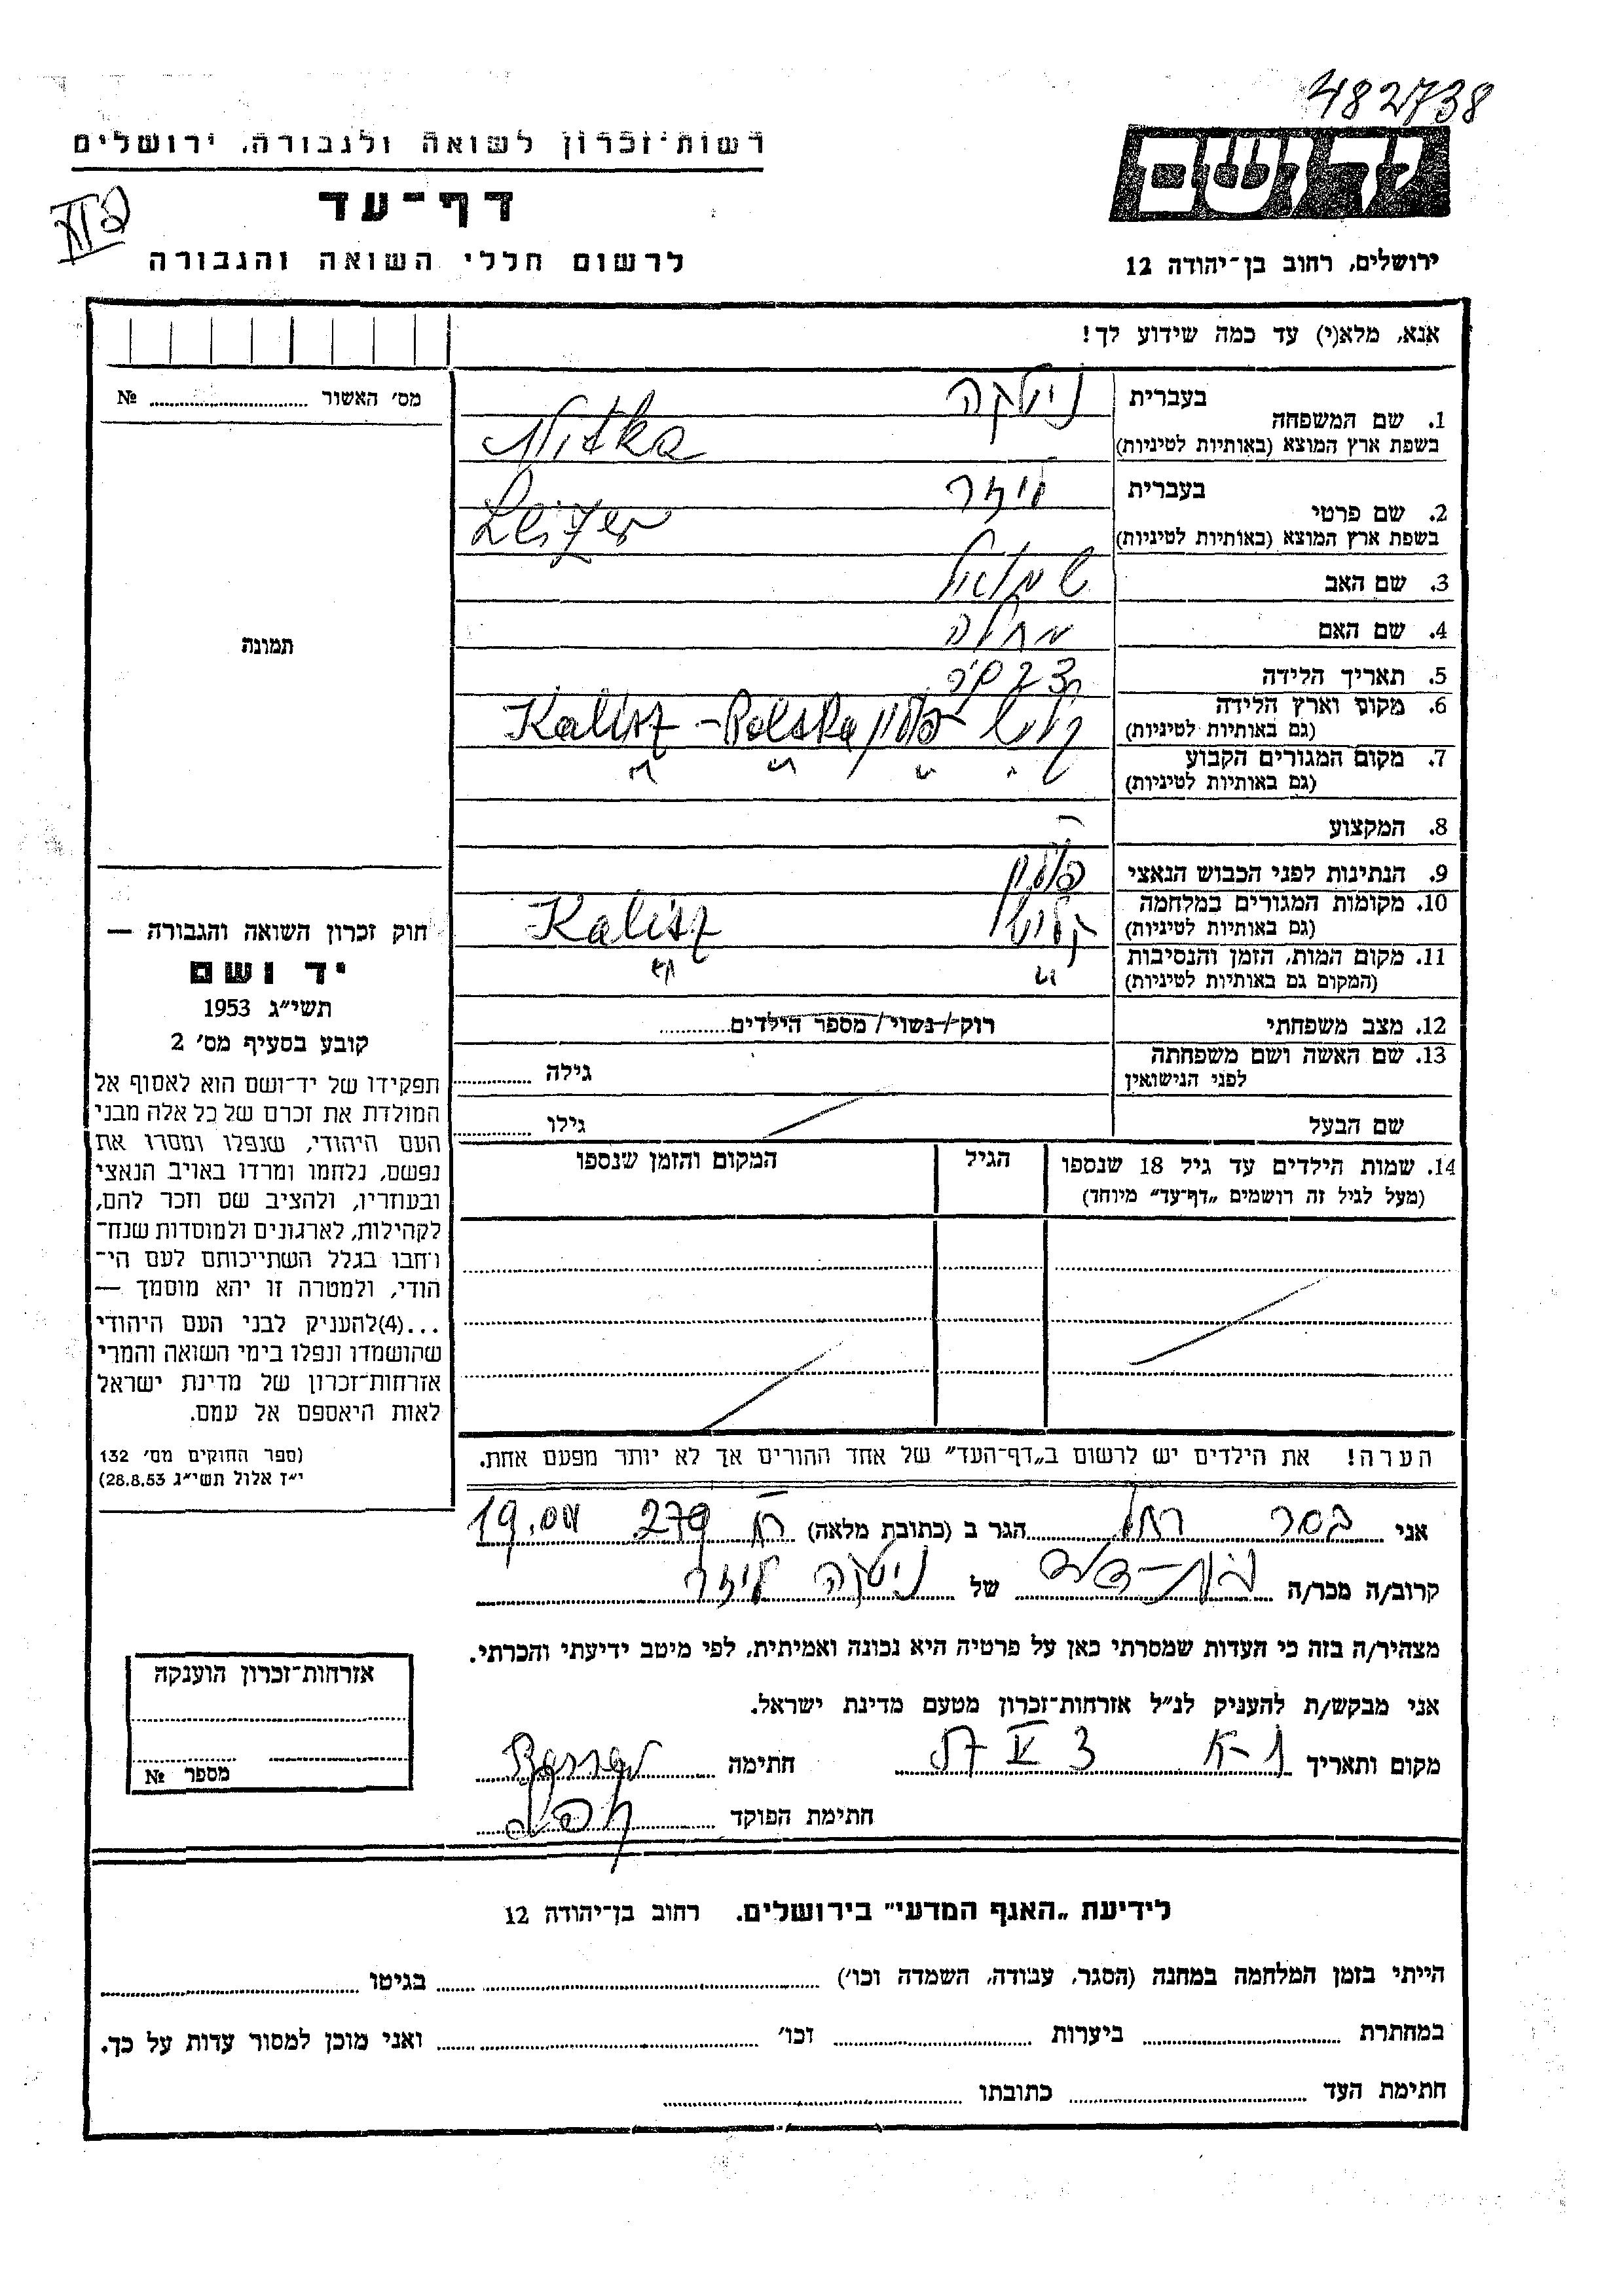 482738
רשות־זכרון לשואה ולגבורה, ירושלים
דף־עד
לרשום חללי השואה והגבורה
ידושם
ירושלים, רחוב בן־יהודה 12
אנא, מלא(י) עד כמה שידוע לך!
מס׳ האשור № 
תמונה
1. שם המשפחה בעברית ניטקה
בשפת ארץ המוצא (באותיות לטיניות) Nitka
2. שם פרטי בעברית ליזר
בשפת ארץ המוצא (באותיות לטיניות) Leizer
3. שם האב שמואל
4. שם האם מחלה
5. תאריך הלידה
6. מקום וארץ הלידה (גם באותיות לטיניות) קליש - פולין Kalisz - Polska
7. מקום המגורים הקבוע (גם באותיות לטיניות) " " " "
8. המקצוע -
9. הנתינות לפני הכבוש הנאצי פולין
10. מקומות המגורים במלחמה (גם באותיות לטיניות) קליש Kalisz
11. מקום המות, הזמן והנסיבות (המקום גם באותיות לטיניות) " "
12. מצב משפחתי רוק/נשוי/מספר הילדים
13. שם האשה ושם משפחתה לפני הנישואין גילה
שם הבעל גילו
14. שמות הילדים עד גיל 18 שנספו (מעל לגיל זה רושמים „דף־עד” מיוחד) הגיל המקום והזמן שנספו
הערה! את הילדים יש לרשום ב„דף־העד” של אחד ההורים אך לא יותר מפעם אחת.
חוק זכרון השואה והגבורה —
יד ושם
תשי״ג 1953
קובע בסעיף מס׳ 2
תפקידו של יד־ושם הוא לאסוף אל
המולדת את זכרם של כל אלה מבני
העם היהודי, שנפלו ומסרו את
נפשם, נלחמו ומרדו באויב הנאצי
ובעוזריו, ולהציב שם וזכר להם,
לקהילות, לארגונים ולמוסדות שנח־
רחבו בגלל השתייכותם לעם הי־
הודי, ולמטרה זו יהא מוסמך —
...(4)להעניק לבני העם היהודי
שהושמדו ונפלו בימי השואה והמרי
אזרחות־זכרון של מדינת ישראל
לאות היאספם אל עמם.
(ספר החוקים מס׳ 132
י״ז אלול תשי״ג 28.8.53)
אני בסר רחל הגר ב (כתובת מלאה) 279
קרוב/ה מכר/ה בת-דוד של ניטקה ליזר
מצהיר/ה בזה כי העדות שמסרתי כאן על פרטיה היא נכונה ואמיתית, לפי מיטב ידיעתי והכרתי.
אני מבקש/ת להעניק לנ״ל אזרחות־זכרון מטעם מדינת ישראל.
מקום ותאריך 3 V 57 חתימה Basser
חתימת הפוקד
אזרחות־זכרון הוענקה
מספר №
לידיעת „האגף המדעי” בירושלים. רחוב בן־יהודה 12
הייתי בזמן המלחמה במחנה (הסגר, עבודה, השמדה וכו׳) בגיטו
במחתרת ביערות וכו׳ ואני מוכן למסור עדות על כך.
חתימת העד כתובתו